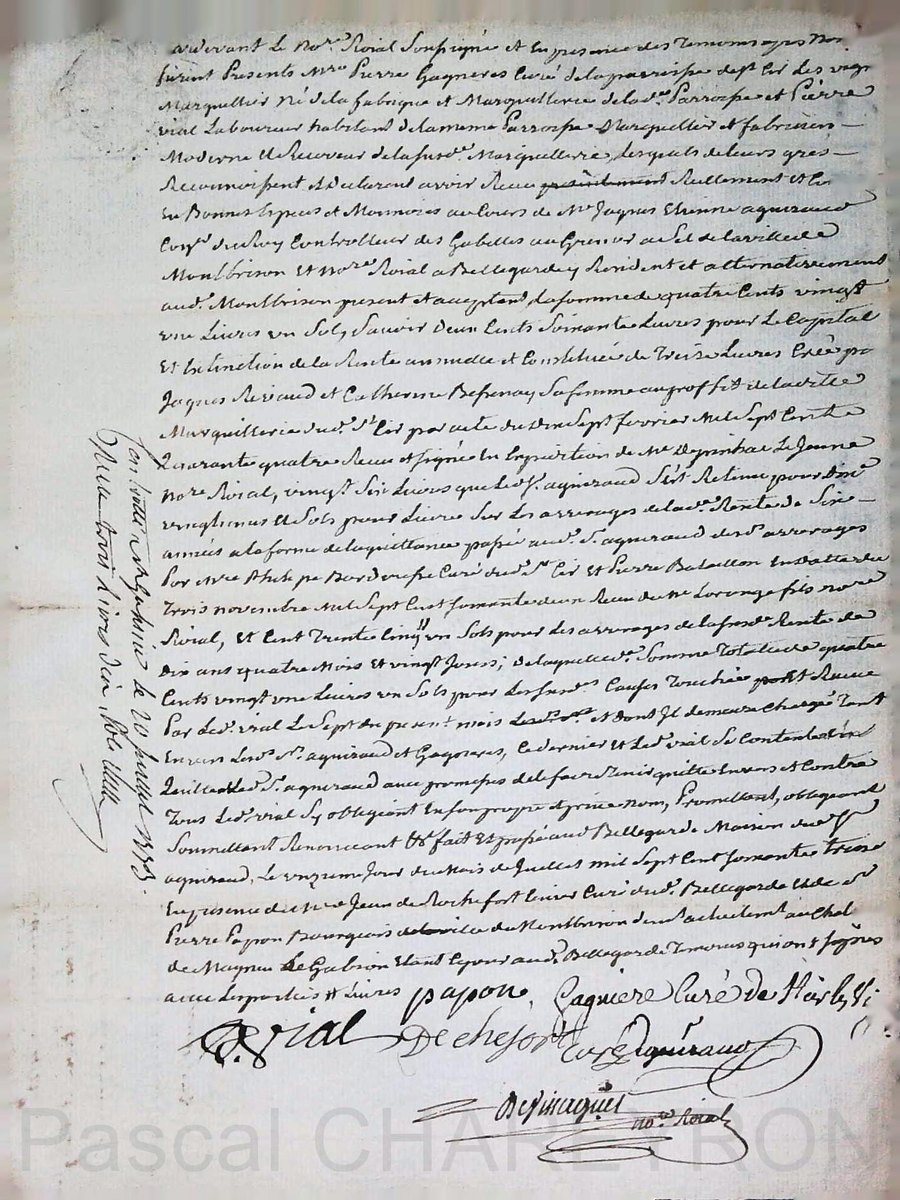 Le No.re Roial Soussigné et En presence des Temoins apres Nom
furent Presents M.re Pierre Gagneres Curé de la parroisse de S.t Cir Les vign
Marguellier Né de la fabrique et Marguellerie de la d.e Parroisse et Pierre
vial Laboureur habitant de la meme Parroisse Marguellier et fabricien
Moderne et Receveur de la Susd.e Marguellerie, lesquels de leurs gres
Reconnoissent et declarent avoir Receu presentement Reellement et
En Bonnes Especes et Monnoies au Cours de M.e Jaques Etienne aguiraud
Con.er du Roy Controlleur des Gabelles au Grenier a Sel de la ville de
Montbrison et No.re Roial a Bellegarde y Resident et alternativement
aud. Montbrison present et acceptant, la somme de quatre Cents vingt
une Livres un Sol, Savoir deux Cents Soixante Livres pour Le Capital
Et Extinction de la Rente annuelle et Constituée de Treize Livres Créé
Jaques Reraud et Catherine Sa femme au proffit de la ditte
Marguillerie dud. S.t Cir par acte du Dix Sept fevrier Mil Sept Cent
quarante quatre Receu et Signé En Expedition de M.e Depinhac Le Jeune
No.re Roial, vingt Six Livres que Led. S.r aguiraud S'est Retenu pour
vingtiemes et Sols pour Livre Sur Les arrerages de la d.e Rente de Six
années a la forme de la quittance passé aud. S.r aguiraud desd. arrerages
Par M.re Philipe Curé dud. S.t Cir et Pierre Bataillon En datte du
Trois novembre Mil Sept Cent Soixante deux Receu de M.e Loranze fils no.re
Roial, Et Cent Trente Cinq un Sols pour Les arrerages de la susd.e Rente de
Dix ans quatre Mois Et vingt Jours; de laquelle d.e Somme Totale de quatre
Cents vingt une Livres un Sols pour Les susd. Causes Touchée et Receue
Par Led. vial Le Sept du present mois et dont Il demeure Chargé Tant
Envers Lesd. S.rs aguiraud et Gagneres, Ce dernier et Led. vial Se Contentent
quittent Led. S.r aguiraud aux promesses de le faire Tenir quitte Envers et Contre
Tous Led. vial S'y obligeant En son propre et prive nom, Promettant, obligeant
Soumettant Renoncant &c fait Et passé aud. Bellegarde Maison dud. S.r
aguiraud, Le onzieme Jour du Mois de Juillet mil Sept Cent Soixante Treize
En presence de M.re Jean de Rochefort Curé dud. Bellegarde et de S.r
Pierre Papon Bourgeois de Montbrison actuelem.t au Chat
de Magneu Le Gabion Etant Ce jour aud. Bellegarde Temoins qui ont Signés
avec Les parties
papon, Gagniere Curé de St Cir les Vi
P. vial De Rochefort Curé Aguiraud
Despinaques no.re Roial
Controllé a le 20 Juillet 1773.
Receu trois Livres dix Sols
Pascal CHAREYRON